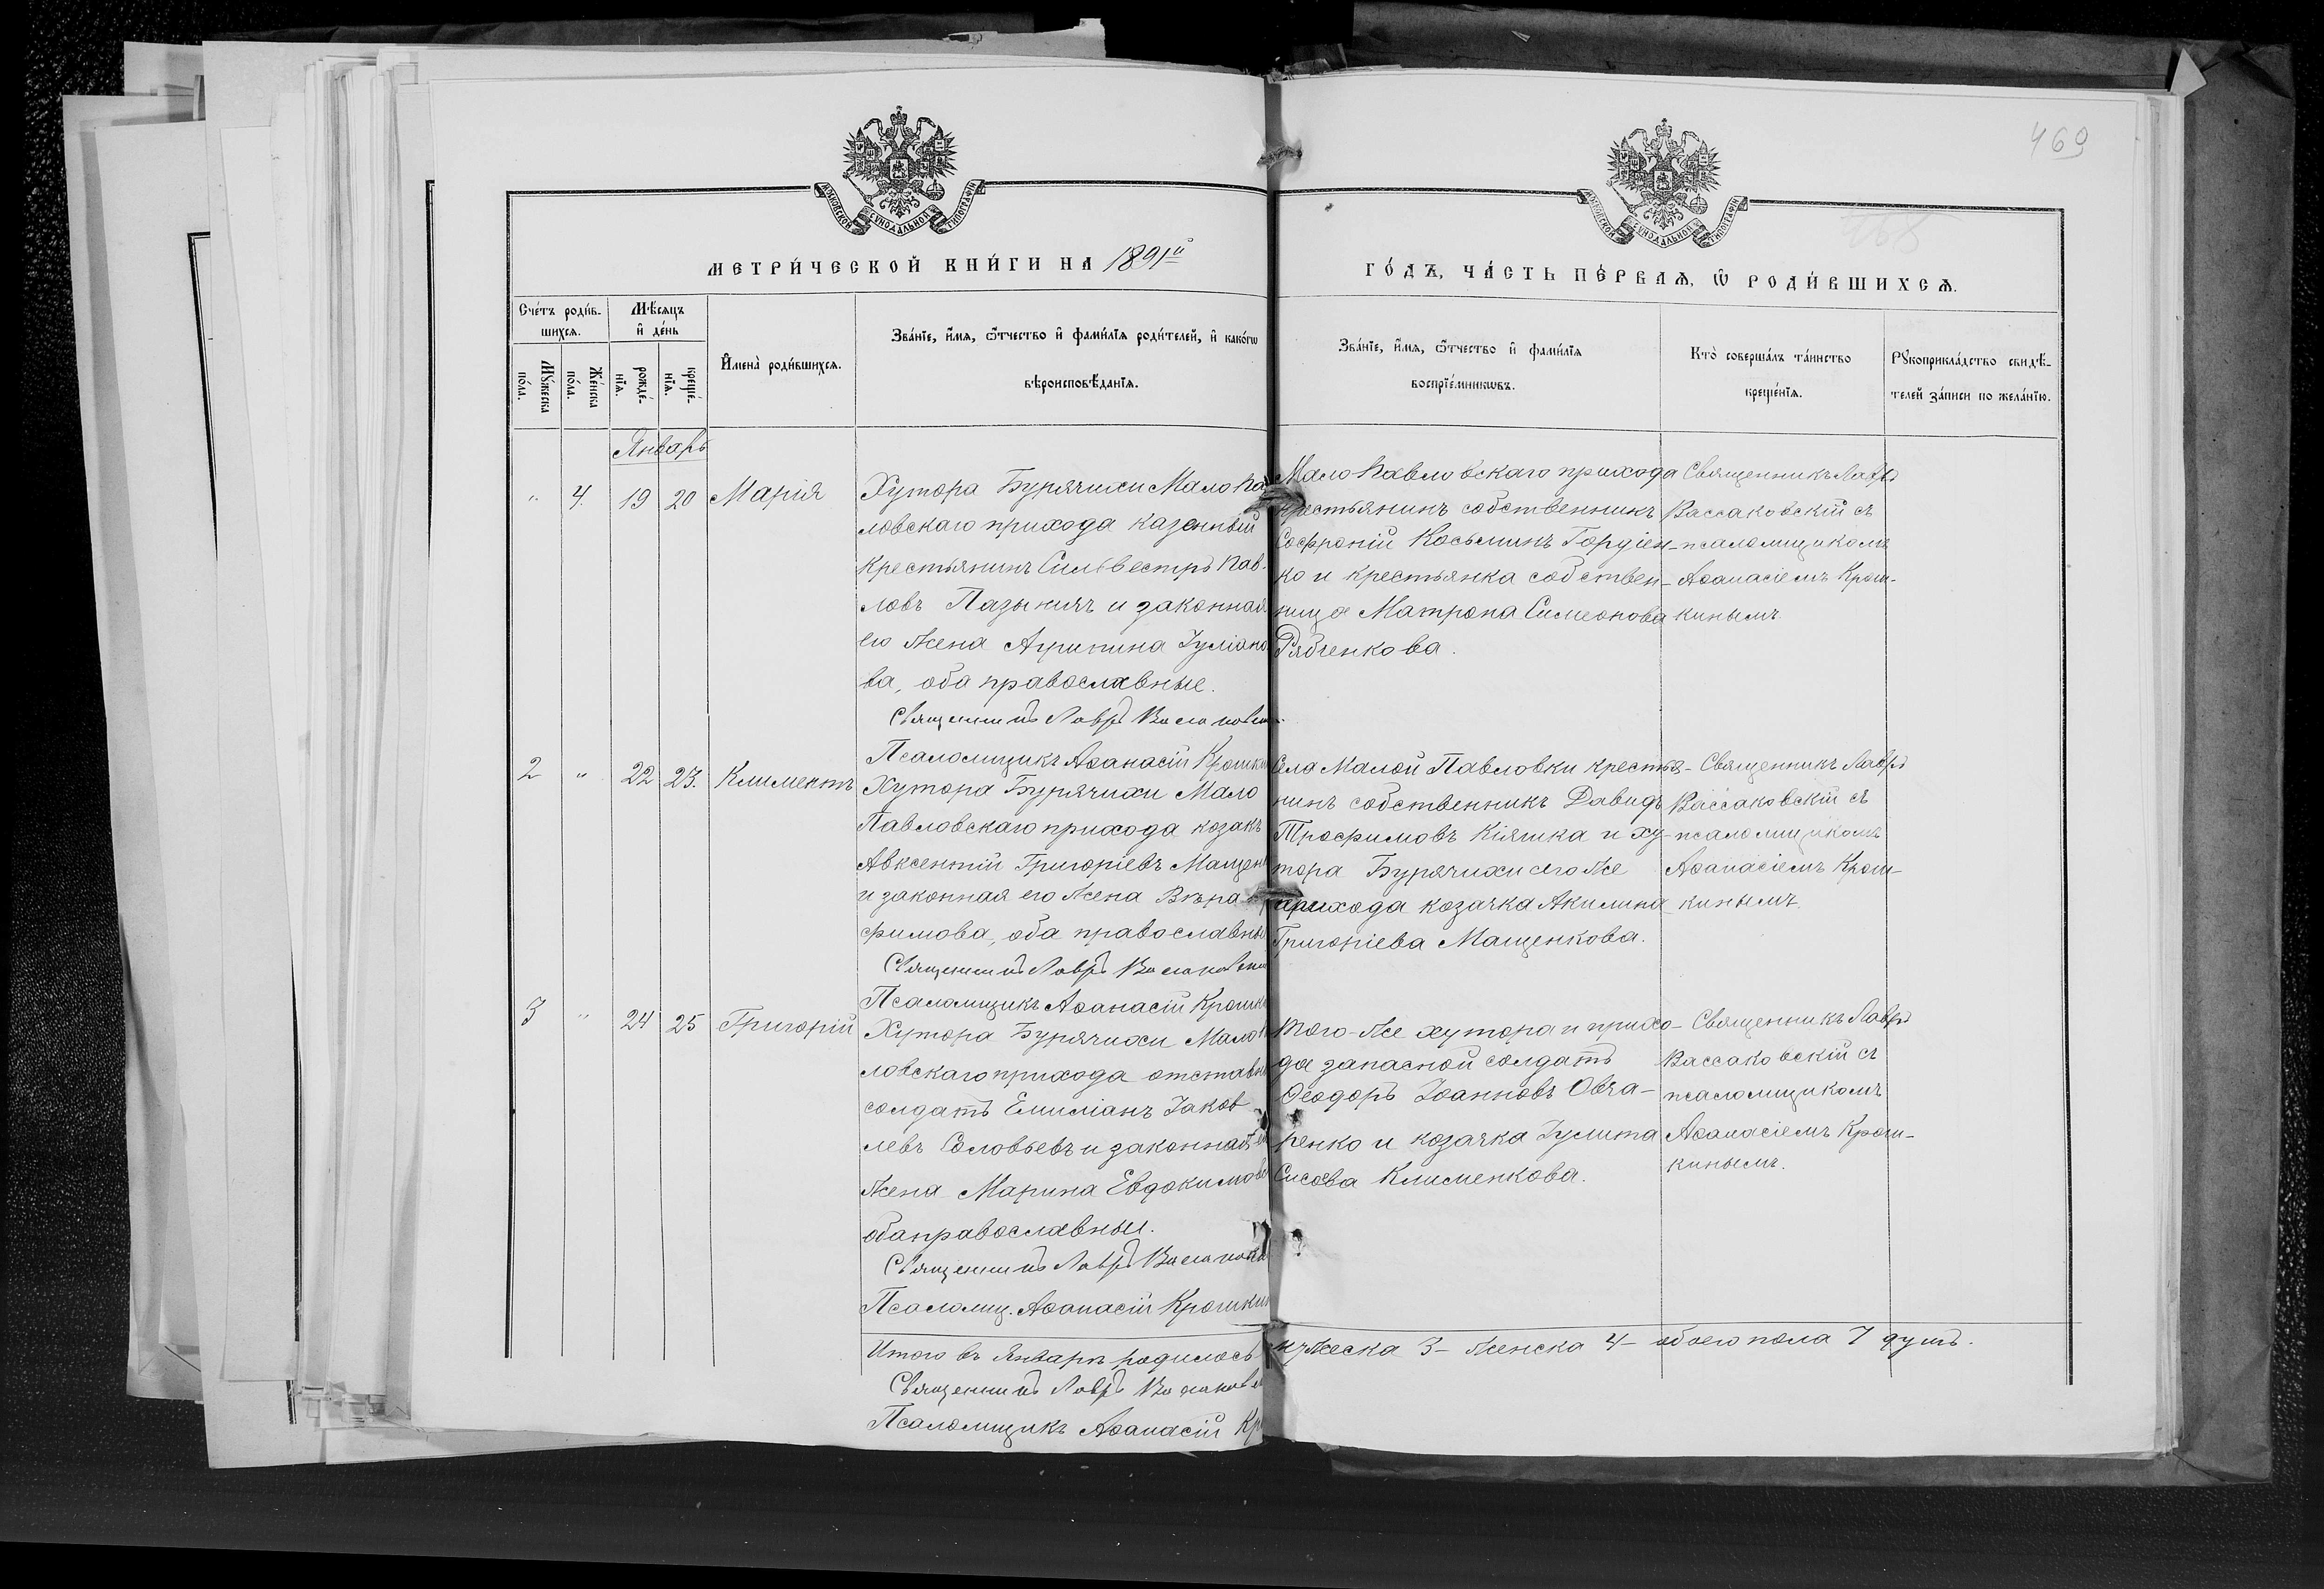 469
МОСКОВСКОЙ СѴНОДАЛЬНОЙ ТИПОГРАФІИ
МОСКОВСКОЙ СѴНОДАЛЬНОЙ ТИПОГРАФІИ
МЕТРИ́ЧЕСКОЙ КНИ́ГИ НА 1891й
ГО́ДЪ, ЧА́СТЬ ПЕ́РВАѦ, Ѽ РОДИ́ВШИХСѦ.
Сче́тъ роди́в-
шихсѧ.
Мꙋ́жеска по́ла.
Же́нска по́ла.
Мѣ́сѧцъ
и҆ де́нь
рожде́-
нїѧ.
креще́-
нїѧ.
И҆мена̀ роди́вшихсѧ.
Зва́нїе, и҆́мѧ, ѻ҆́тчество и҆ фами́лїѧ роди́телей, и҆ како́гѡ
вѣроисповѣ́данїѧ.
Зва́нїе, и҆́мѧ, ѻ҆́тчество и҆ фами́лїѧ
воспрїе́мникѡвъ.
Кто̀ соверша́лъ та́инство
креще́нїѧ.
Рꙋкоприкла́дство свидѣ́-
телей за́писи по жела́нїю.
Январь
" 4. 19 20 Марія
Хутора Бурячихи Мало Па
ловскаго прихода казенный
крестьянинъ Сильвестръ Пав-
ловъ Пазынич и законная
его жена Агрипина Іуліано
ва, оба православные.
Священникъ Лавръ
Псаломщикъ Аѳанасій Крошки
Мало Павловскаго прихода
крестьянинъ собственникъ
Софроній Косьминъ Гордіен-
ко и крестьянка собствен-
ница Матрона Симеонова
Рябченкова.
Священникъ Лавръ
Вассаковскій съ
псаломщикомъ
Аѳанасіемъ Крош-
кинымъ.
2 " 22 23. Климентъ
Хутора Бурячихи Мало
Павловскаго прихода козакъ
Авксентій Григоріевъ Мащен
и законная его жена Вѣра
фимова, оба православны
Священникъ Лавръ
Псаломщикъ Аѳанасій Крошки
Села Малой Павловки крестья-
нинъ собственникъ Давидъ
Трофимовъ Кіяшка и ху-
тора Бурячихи сего же
прихода козачка Акилина
Григоріева Мащенкова.
Священникъ Лавръ
Вассаковскій съ
псаломщикомъ
Аѳанасіемъ Крош-
кинымъ.
3 " 24 25 Григорій
Хутора Бурячихи Мало
ловскаго прихода отставн
солдатъ Емиліанъ Іаков
левъ Соловьевъ и законная его
жена Марина Евдокимова
оба православные.
Священникъ Лавръ
Псаломщ. Аѳанасій Крошкин
того-же хутора и прихо-
да запасной солдатъ
Ѳеодоръ Іоанновъ Овча-
ренко и козачка Іулита
Сисоева Клименкова.
Священникъ Лавръ
Вассаковскій съ
псаломщикомъ
Аѳанасіемъ Крош-
кинымъ.
Итого въ Январѣ родилось мужеска 3- женска 4- обоего пола 7 душъ.
Священникъ Лавръ
Псаломщикъ Аѳанасій Кр